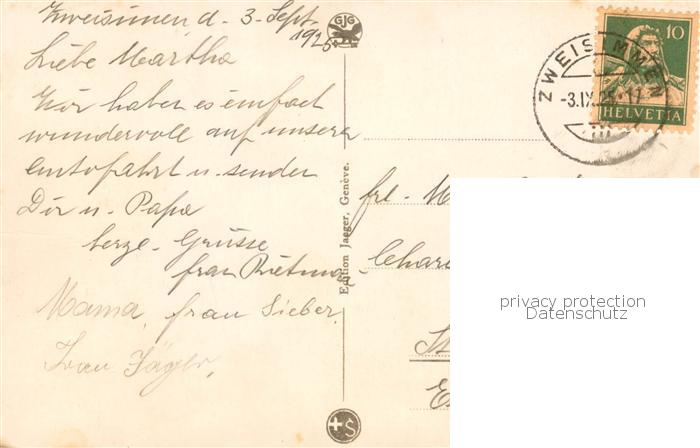 Zweisimmen d. 3. Sept.
1925
Liebe Martha
Wir haben es einfach
wundervoll auf unserer
Autofahrt u. senden
Dir u. Papa
herzl. Grüsse
frau
Mama, frau Sieber,
Frau Jäger,
GJG
Edition Jaeger, Genève.
ZWEISIMMEN
-3.IX.25-17
10
HELVETIA
frl.
privacy protection
Datenschutz
S